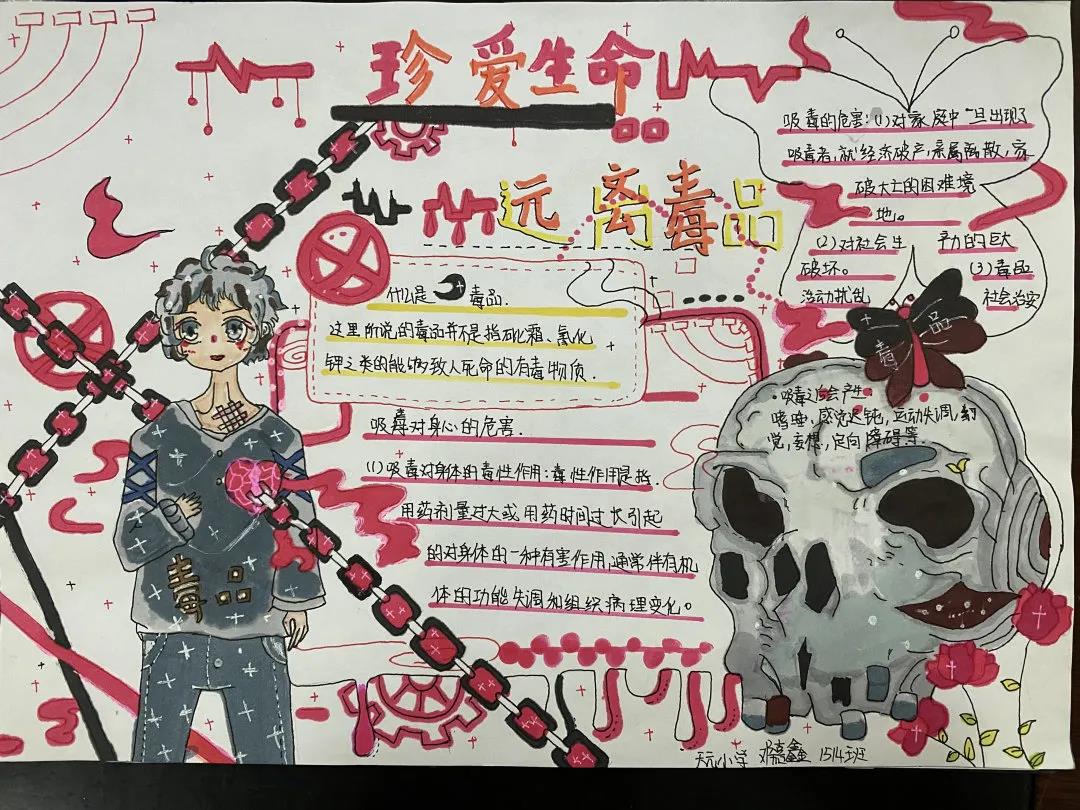 珍爱生命
远离毒品
什么是毒品.
这里所说的毒品并不是指砒霜、氰化
钾之类的能够致人死命的有毒物质.
吸毒对身心的危害.
(1)吸毒对身体的毒性作用:毒性作用是指
用药剂量过大或用药时间过长引起
的对身体的一种有害作用,通常伴有机
体的功能失调和组织病理变化。
吸毒的危害:(1)对家庭中一旦出现了
吸毒者,就经济破产,亲属离散,家
破人亡的困难境
地。
(2)对社会生
力的巨大
破坏。
(3)毒品
活动扰乱
社会治安
毒品
·吸毒后会产生
嗜睡,感觉迟钝,运动失调,幻
觉,妄想,定向障碍等.
毒品
天元小学 邓嘉鑫 1514班